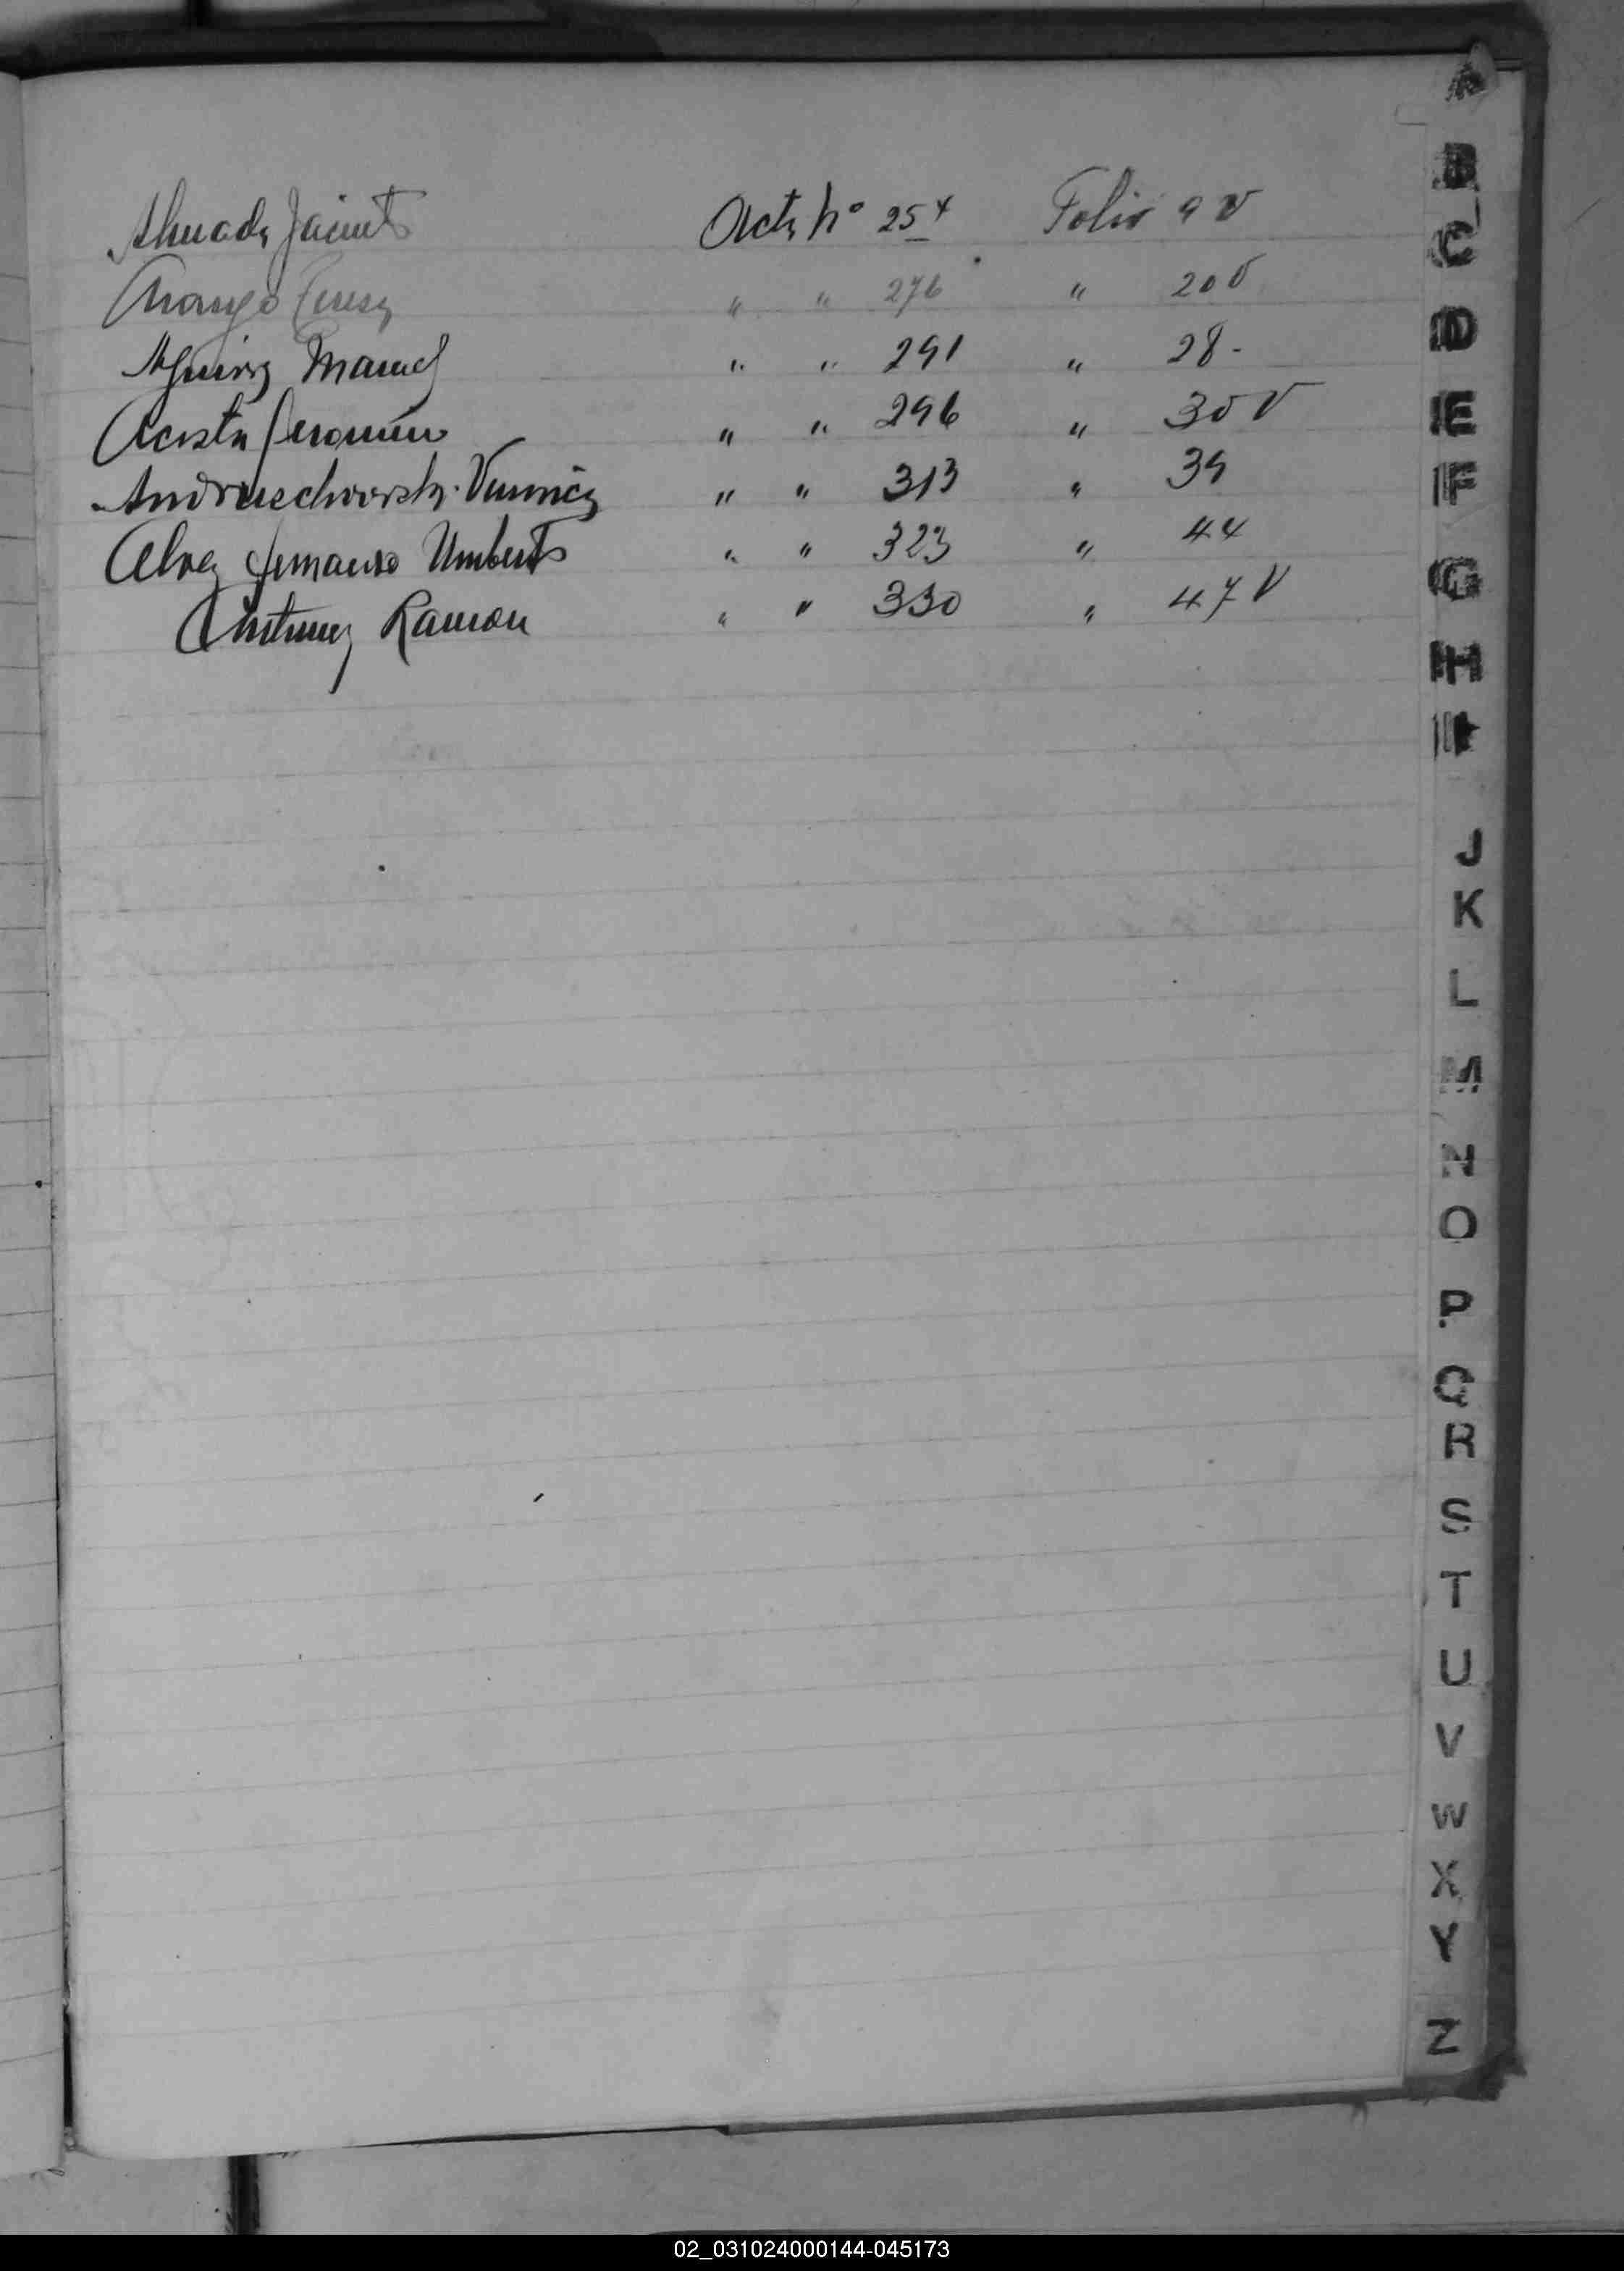 Almada Jacinto Acta Nº 254 Folio 9 V
Aranyo Teresa " " 276 " 20 V
Aguirrez Manuel " " 291 " 28 -
Acosta Jeronimo " " 296 " 30 V
Veronica " " 313 " 39
Alvez Umberto " " 323 " 44
Antunez Ramon " " 330 " 47 V
A
B
C
D
E
F
G
H
I
J
K
L
M
N
O
P
Q
R
S
T
U
V
W
X
Y
Z
02_031024000144-045173